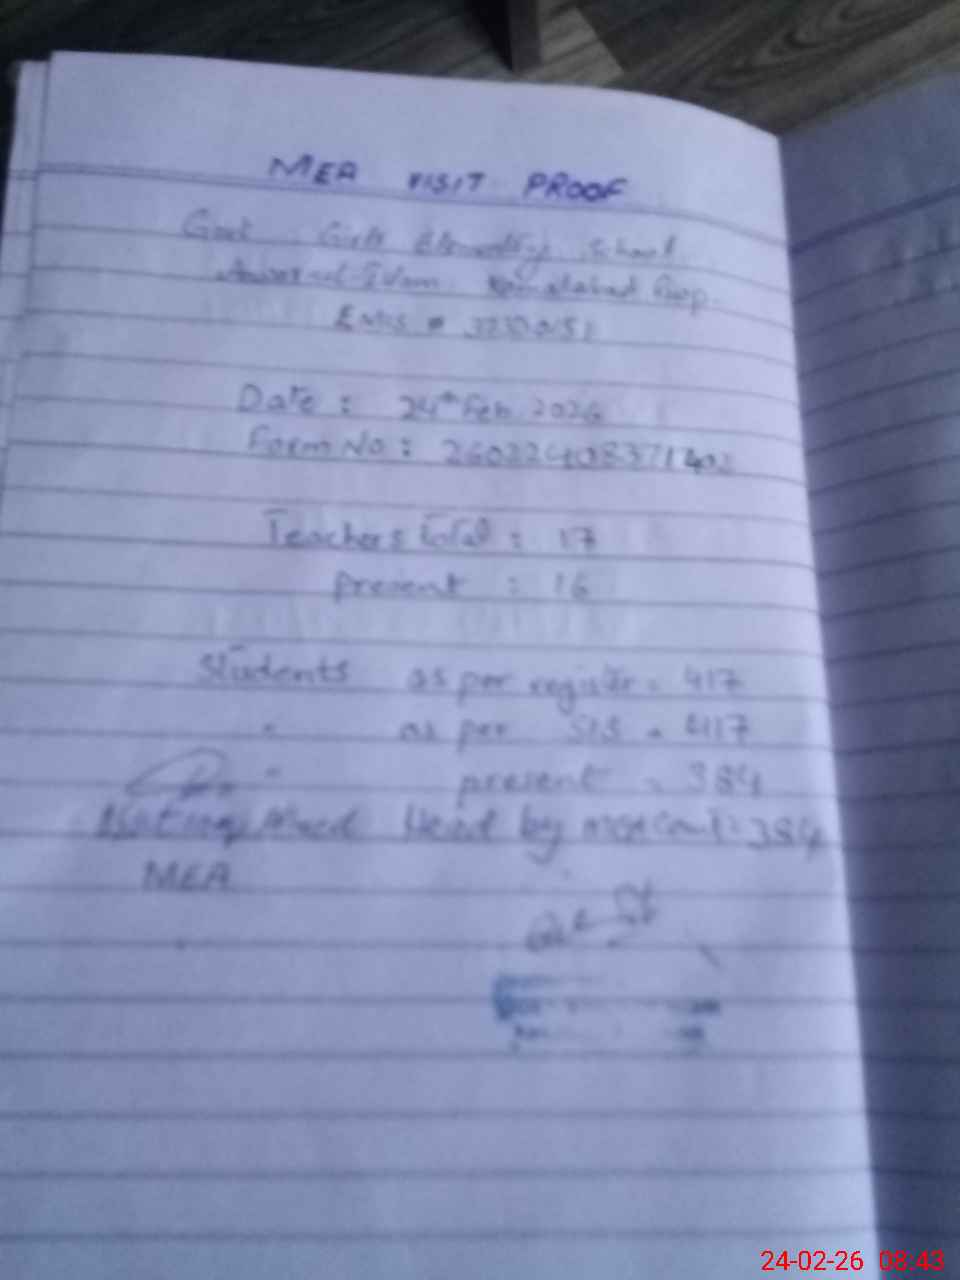 MEA VISIT PROOF
Govt. Girls Elementary School
Islam. Kamalabad Rwp.
Emis #
Date : 24th Feb 2026
Form No : 26022408371402
Teachers total : 17
present : 16
Students as per register = 417
" as per SIS = 417
" present = 384
Head by mea Count = 384
MEA
24-02-26 08:43